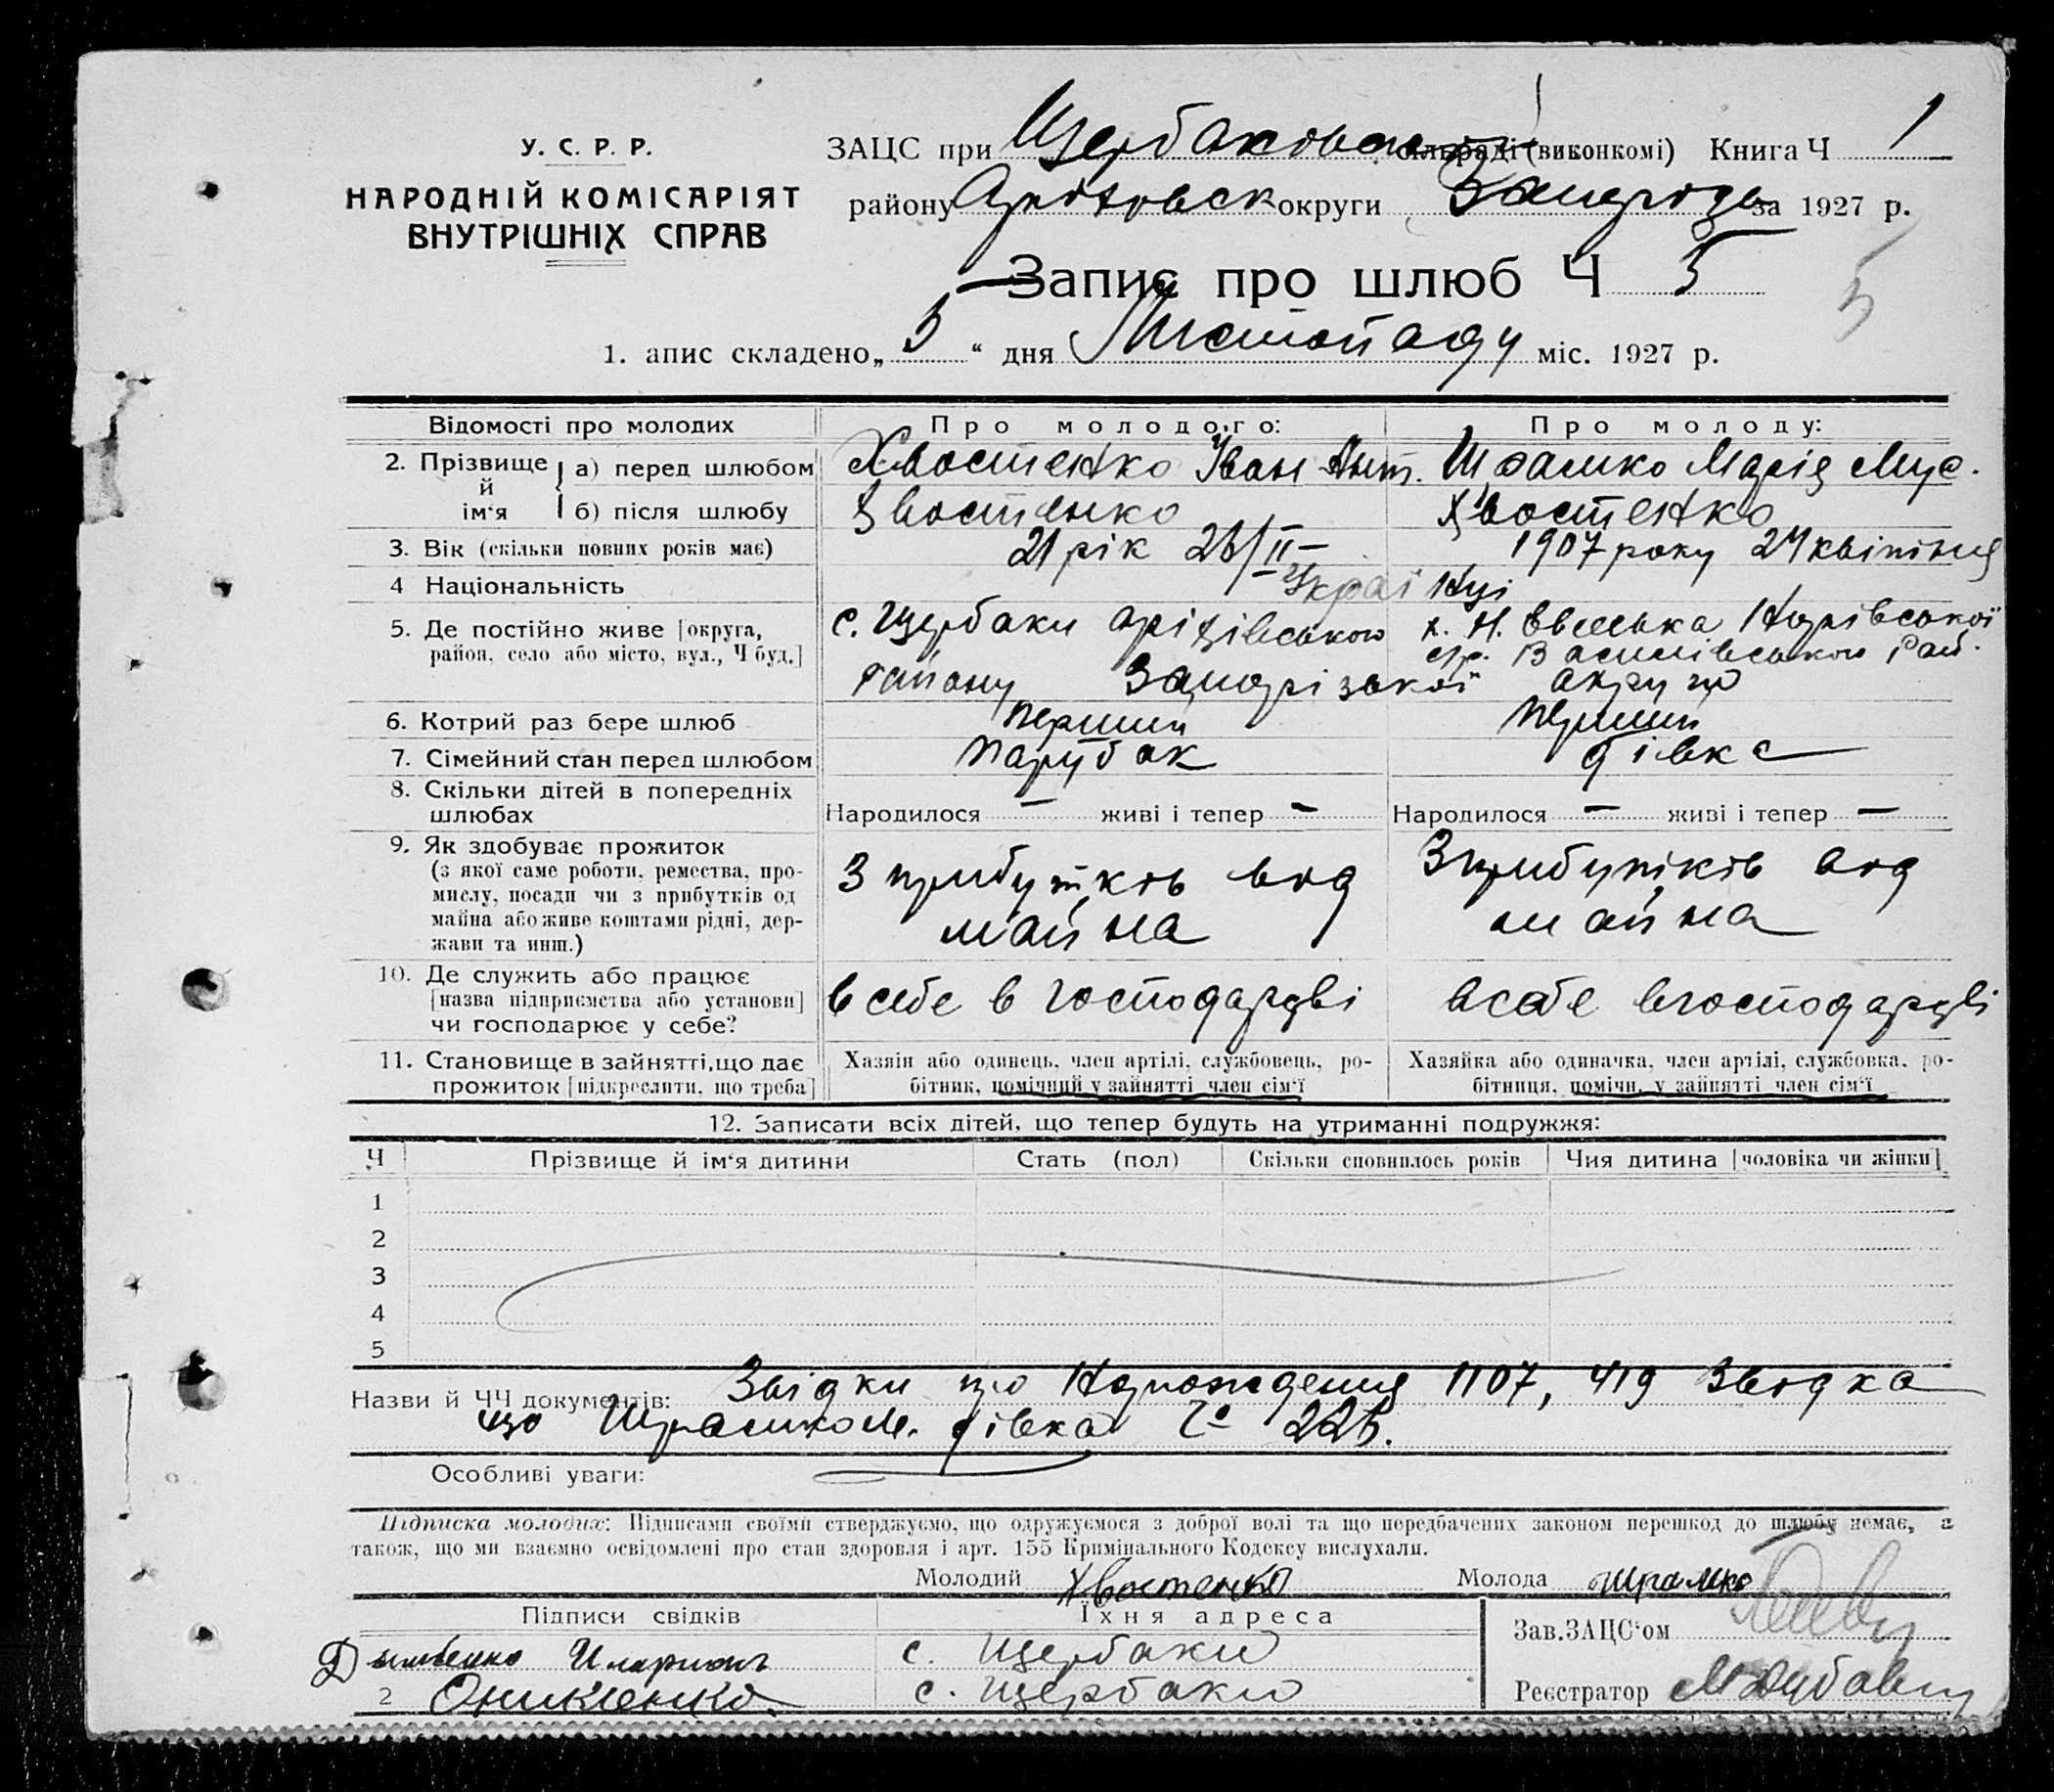 У. С. Р. Р.
НАРОДНІЙ КОМІСАРІЯТ
ВНУТРІШНІХ СПРАВ
ЗАЦС при Щербаковск сільраді (виконкомі) Книга Ч 1
району округи Запорізь за 1927 р.
Запис про шлюб Ч 5
5
1. апис складено „ 5 “ дня Листопаду міс. 1927 р.
Відомості про молодих Про молодого: Про молоду:
2. Прізвище й ім‘я а) перед шлюбом Хвостенко Іван Ант. Шрамко Марія Мус.
б) після шлюбу Хвостенко Хвостенко
3. Вік (скільки повних років має) 21 рік 23/II 1907 року 24 квітня
4 Національність Украї нці
5. Де постійно живе [округа, с. Щербаки оріхівського х. Н.
район, село або місто, вул., Ч буд.] Василівського
району Запорізької округи
6. Котрий раз бере шлюб перший перший
7. Сімейний стан перед шлюбом парубак дівка
8. Скільки дітей в попередніх
шлюбах Народилося — живі і тепер — Народилося — живі і тепер —
9. Як здобуває прожиток
(з якої саме роботи, ремества, про-
мислу, посади чи з прибутків од
майна або живе коштами рідні, дер-
жави та инш.)
З прибутків вод
майна
З прибутків вод
майна
10. Де служить або працює
[назва підприємства або установи]
чи господарює у себе?
в себе в господарцві
в себе в господарцві
11. Становище в зайнятті, що дає
прожиток [підкреслити, що треба]
Хазяїн або одинець, член артілі, службовець, ро-
бітник, помічний у зайнятті член сім‘ї
Хазяйка або одиначка, член артілі, службовка, ро-
бітниця, помічн. у зайнятті член сім‘ї
12. Записати всіх дітей, що тепер будуть на утриманні подружжя:
Ч Прізвище й ім‘я дитини Стать (пол) Скільки сповнилось років Чия дитина [чоловіка чи жінки]
1
2
3
4
5
Назви й ЧЧ документів: Звідки про 1107, 419 Звідка
що Шрамко М. дівка 225.
Особливі уваги:
Підписка молодих: Підписами своїми стверджуємо, що одружуємося з доброї волі та що передбачених законом перешкод до шлюбу немає, а
також, що ми взаємно освідомлені про стан здоровля і арт. 155 Кримінального Кодексу вислухали.
Молодий Хвостенко Молода Шрамко
Підписи свідків Їхня адреса
Зав.ЗАЦС‘ом
Иларион с. Щербаки
2 Оникіенко с. Щербаки
Реєстратор